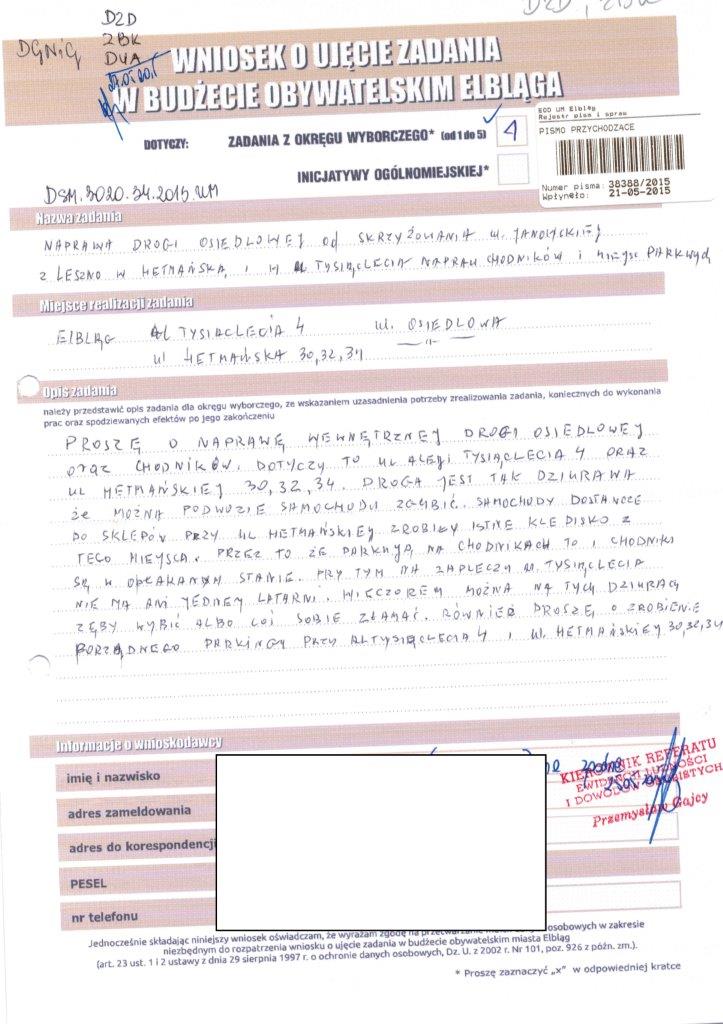 DGNiG
DZD
ZBK
DUA
WNIOSEK O UJĘCIE ZADANIA
W BUDŻECIE OBYWATELSKIM ELBLĄGA
DOTYCZY:
ZADANIA Z OKRĘGU WYBORCZEGO* (od 1 do 5)
4
INICJATYWY OGÓLNOMIEJSKIEJ*
EOD UM Elbląg
Rejestr pism i spraw
PISMO PRZYCHODZĄCE
Numer pisma: 38388/2015
Wpłynęło: 21-05-2015
DSM.3020.34.2015.UM
Nazwa zadania
NAPRAWA DROGI OSIEDLOWEJ od SKRZYŻOWANIA ul.
Z LESZNO W HETMAŃSKĄ I TYSIĄCLECIA NAPRAW CHODNIKÓW i miejsc PARKWYCH
Miejsce realizacji zadania
ELBLĄG AL TYSIĄCLECIA 4 ul. OSIEDLOWA
ul HETMAŃSKA 30,32,34 —"—
Opis zadania
należy przedstawić opis zadania dla okręgu wyborczego, ze wskazaniem uzasadnienia potrzeby zrealizowania zadania, koniecznych do wykonania
prac oraz spodziewanych efektów po jego zakończeniu
PROSZĘ O NAPRAWĘ WEWNĘTRZNEJ DROGI OSIEDLOWEJ
oraz CHODNIKÓW. DOTYCZY TO UL ALEJI TYSIĄCLECIA 4 ORAZ
UL HETMAŃSKIEJ 30,32,34. DROGA JEST TAK DZIURAWA
że MOŻNA PODWOZIE SAMOCHODU ZGUBIĆ. SAMOCHODY DOSTAWCZE
DO SKLEPÓW PRZY UL HETMAŃSKIEJ ZROBIŁY ISTNE KLEPISKO Z
TEGO MIEJSCA. PRZEZ TO ŻE PARKUJĄ NA CHODNIKACH TO I CHODNIKI
SĄ W OPŁAKANYM STANIE. PRZY TYM NA ZAPLECZU ul. TYSIĄCLECIA
NIE MA ANI JEDNEJ LATARNI. WIECZOREM MOŻNA NA TYCH DZIURACH
ZĘBY WYBIĆ ALBO COŚ SOBIE ZŁAMAĆ. RÓWNIEŻ PROSZĘ O ZROBIENIE
PORZĄDNEGO PARKINGU PRZY AL TYSIĄCLECIA 4 i ul. HETMAŃSKIEJ 30,32,34
Informacje o wnioskodawcy
imię i nazwisko
adres zameldowania
adres do korespondencji
PESEL
nr telefonu
KIEROWNIK REFERATU
EWIDENCJI LUDNOŚCI
I DOWODÓW OSOBISTYCH
Przemysław Gajcy
Jednocześnie składając niniejszy wniosek oświadczam, że wyrażam zgodę na przetwarzanie moich danych osobowych w zakresie
niezbędnym do rozpatrzenia wniosku o ujęcie zadania w budżecie obywatelskim miasta Elbląg
(art. 23 ust. 1 i 2 ustawy z dnia 29 sierpnia 1997 r. o ochronie danych osobowych, Dz. U. z 2002 r. Nr 101, poz. 926 z późn. zm.).
* Proszę zaznaczyć „x" w odpowiedniej kratce